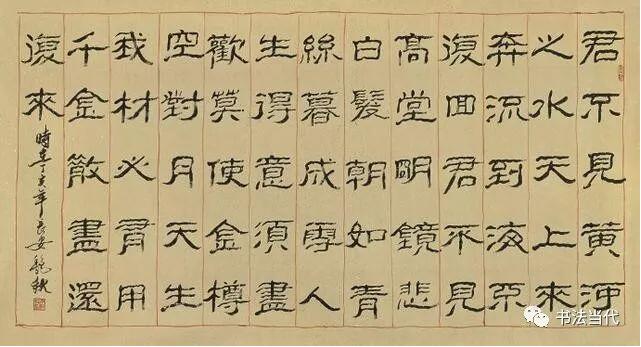 君不見黄河
之水天上來
奔流到海不
復回君不見
高堂明鏡悲
白髮朝如青
絲暮成雪人
生得意須盡
歡莫使金樽
空對月天生
我材必有用
千金散盡還
復來
時在丁亥年長安
书法当代